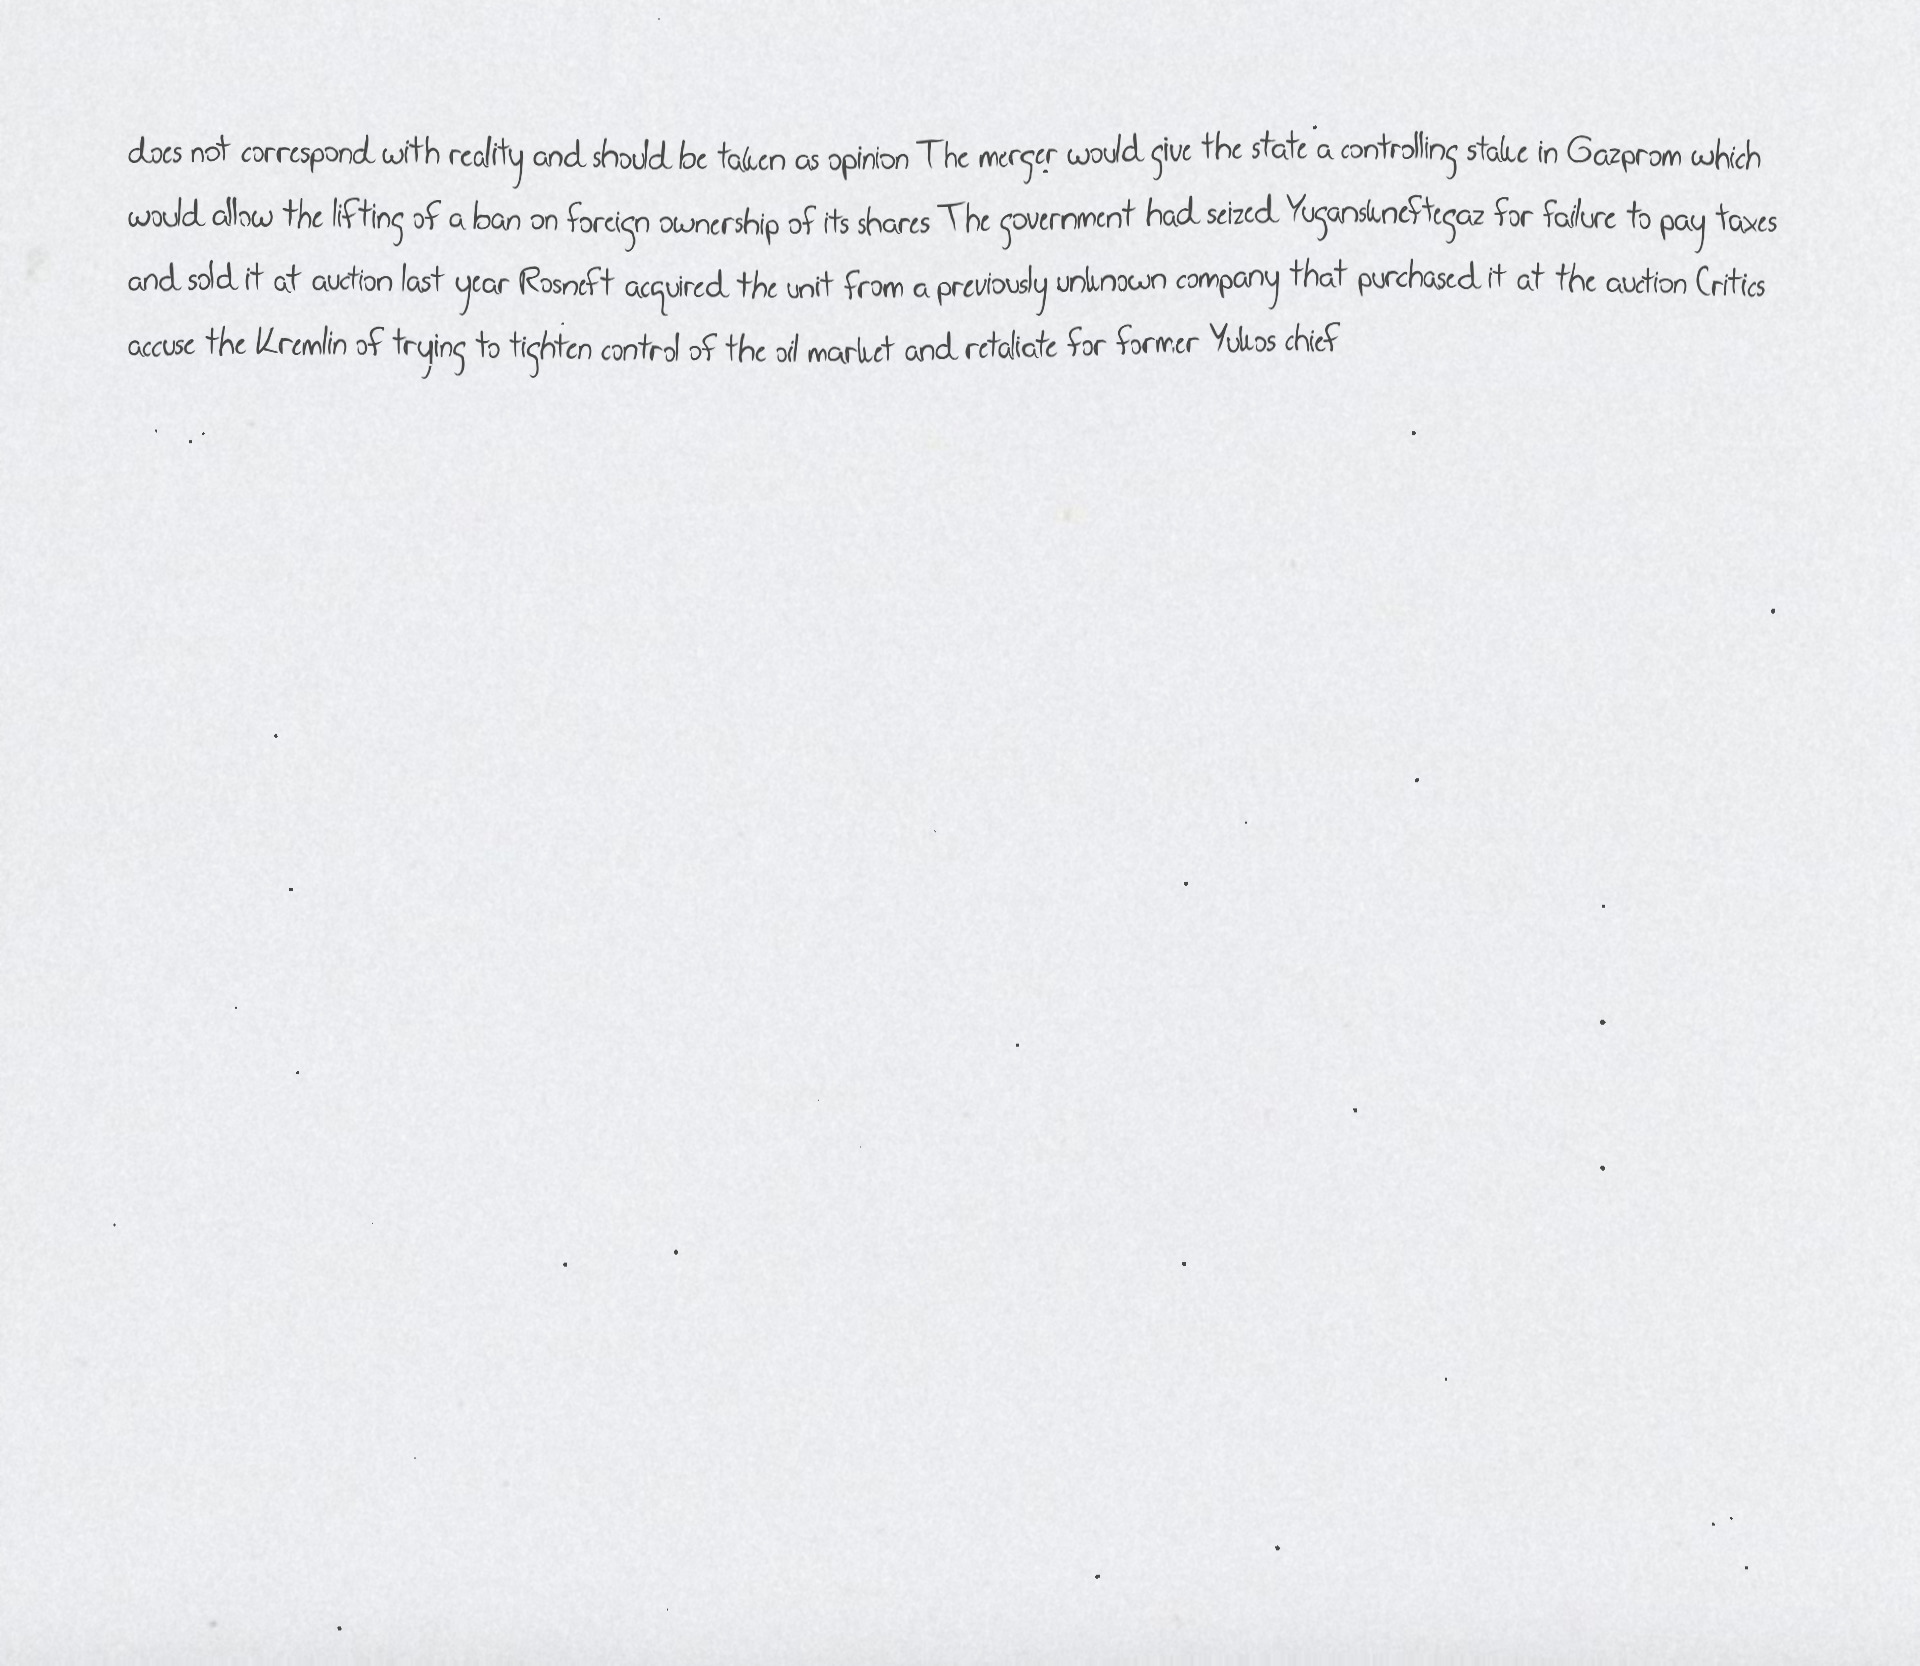 does not correspond with reality and should be taken as opinion The merger would give the state a controlling stake in Gazprom which
would allow the lifting of a ban on foreign ownership of its shares The government had seized Yuganskneftegaz for failure to pay taxes
and sold it at auction last year Rosneft acquired the unit from a previously unknown company that purchased it at the auction Critics
accuse the Kremlin of trying to tighten control of the oil market and retaliate for former Yukos chief